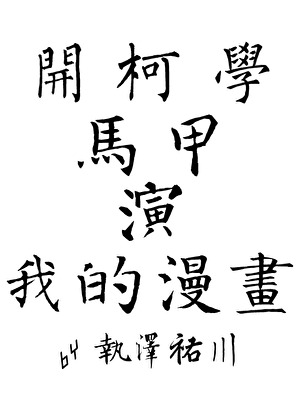 開柯學
馬甲
演
我的漫畫
by 執澤祐川